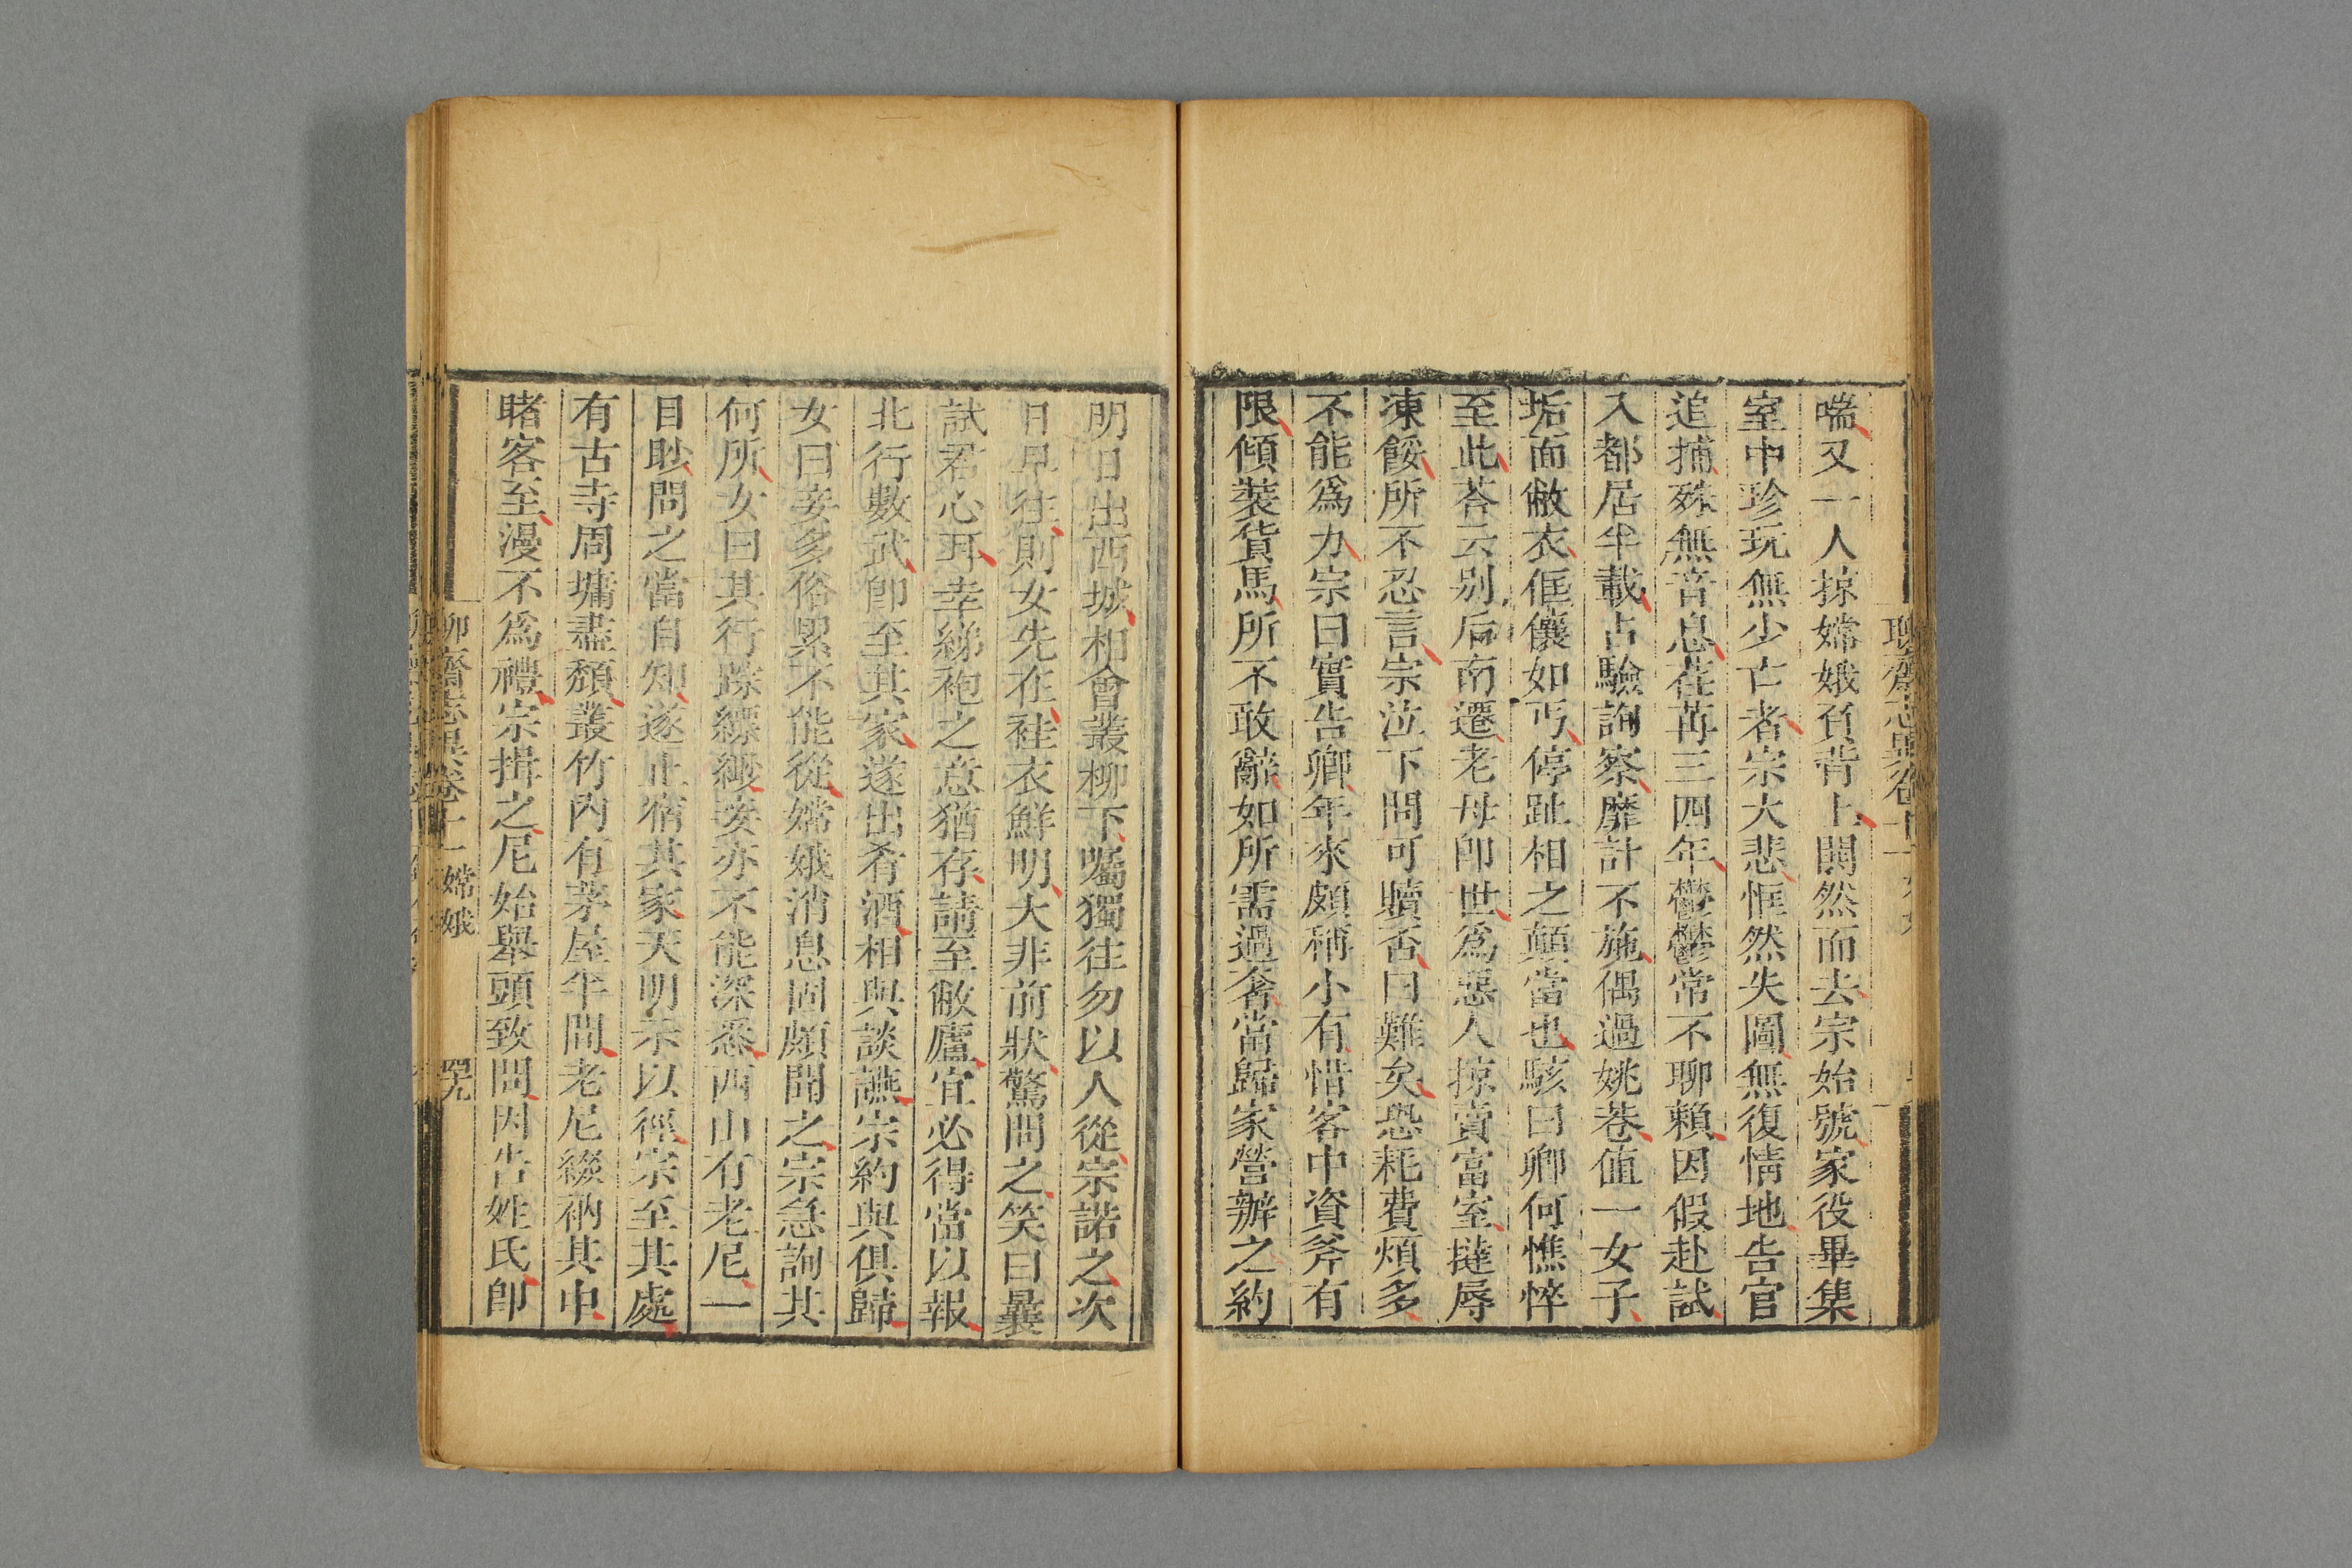 喘又一人掠嫦娥負背上閧然而去宗始號家役畢集
室中珍玩無少亡者宗大悲恇然失圖無復情地告官
追捕殊無音息荏苒三四年鬱鬱常不聊賴因假赴試
入都居半載占驗詢察靡計不施偶過姚巷值一女子
垢面敝衣儴如丐停趾相之顛當也駭曰卿何憔悴
至此荅云别后南遷老母即世爲惡人掠賣富室撻辱
凍餒所不忍言宗泣下問可贖否曰難矣恐耗費煩多
不能爲力宗曰實告卿年來頗稱小有惜客中資斧有
限傾裝貨馬所不敢辭如所需過奢當歸家營辦之約
明日出西城相會叢柳下囑獨往勿以人從宗諾之次
日早往則女先在袿衣鮮明大非前狀驚問之笑曰曩
試君心耳幸綈袍之意猶存請至敝廬宜必得當以報
北行數武即至其家遂出肴酒相與談讌宗約與俱歸
女曰妾多俗累不能從嫦娥消息固頗聞之宗急詢其
何所女曰其行踪縹緲妾亦不能深悉西山有老尼一
目眇問之當自知遂止宿其家天明示以徑宗至其處
有古寺周墉盡頽叢竹內有茅屋半間老尼綴衲其中
睹客至漫不爲禮宗揖之尼始舉頭致問因告姓氏即
聊齋志異卷十一 嫦娥 四九